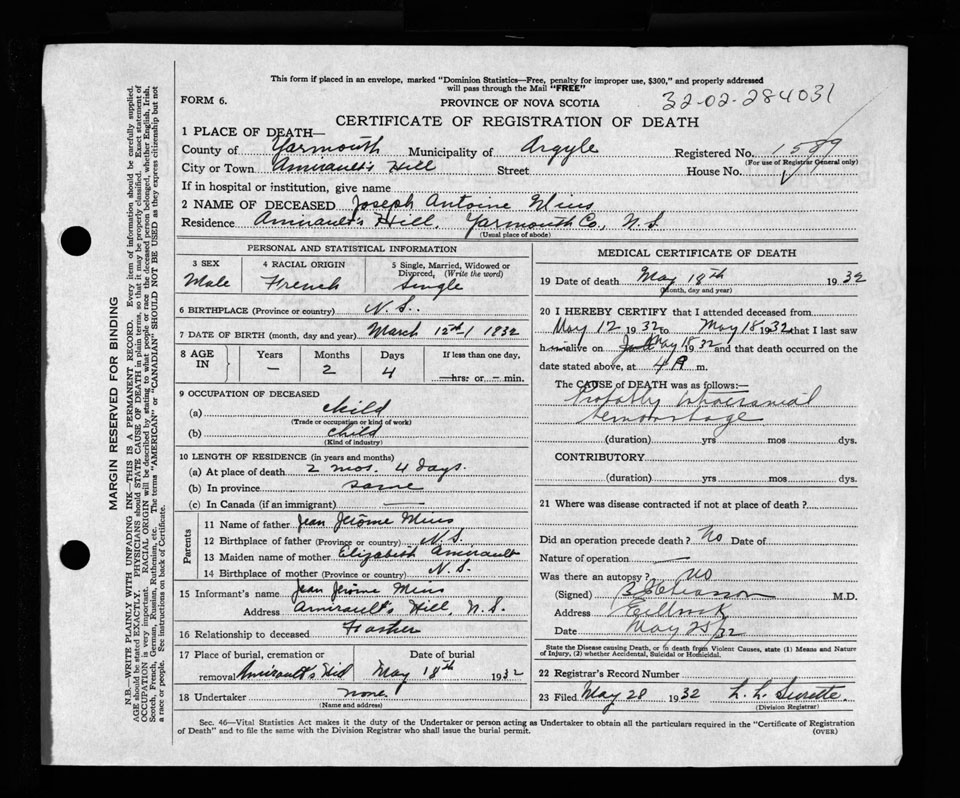 This form if placed in an envelope, marked "Dominion Statistics—Free, penalty for improper use, $300," and properly addressed
will pass through the Mail "FREE"
FORM 6.
PROVINCE OF NOVA SCOTIA
32-02-284031
CERTIFICATE OF REGISTRATION OF DEATH
1 PLACE OF DEATH—
County of Yarmouth Municipality of Argyle Registered No. 1589
(For use of Registrar General only)
City or Town Amirault's Hill Street House No.
If in hospital or institution, give name
2 NAME OF DECEASED Joseph Antoine Mius
Residence Amirault's Hill, Yarmouth Co., N.S.
(Usual place of abode)
PERSONAL AND STATISTICAL INFORMATION
3 SEX 4 RACIAL ORIGIN 5 Single, Married, Widowed or
Divorced, (Write the word)
Male French Single
6 BIRTHPLACE (Province or country) N.S.
7 DATE OF BIRTH (month, day and year) March 12th 1932
8 AGE IN Years Months Days If less than one day,
— 2 4 — hrs. or — min.
9 OCCUPATION OF DECEASED
(a) child
(Trade or occupation or kind of work)
(b) child
(Kind of industry)
10 LENGTH OF RESIDENCE (in years and months)
(a) At place of death 2 mos. 4 days.
(b) In province same
(c) In Canada (if an immigrant) —
Parents
11 Name of father Jean Jerôme Mius
12 Birthplace of father (Province or country) N.S.
13 Maiden name of mother Elizabeth Amirault
14 Birthplace of mother (Province or country) N.S.
15 Informant's name Jean Jerôme Mius
Address Amirault's Hill, N.S.
16 Relationship to deceased Father
17 Place of burial, cremation or Date of burial
removal Amirault's Hill May 18th 1932
18 Undertaker none
(Name and address)
MEDICAL CERTIFICATE OF DEATH
19 Date of death May 18th 1932
(Month, day and year)
20 I HEREBY CERTIFY that I attended deceased from
May 12 1932 to May 18 1932 that I last saw
him alive on May 18 1932 and that death occurred on the
date stated above, at 4 A m.
The CAUSE of DEATH was as follows:—
Probably Intracranial
Hemorrhage
(duration) yrs mos dys.
CONTRIBUTORY
(duration) yrs mos dys.
21 Where was disease contracted if not at place of death?
Did an operation precede death? No Date of
Nature of operation —
Was there an autopsy? no
(Signed) M.D.
Address
Date May 25/32
State the Disease causing Death, or in death from Violent Causes, state (1) Means and Nature
of Injury, (2) whether Accidental, Suicidal or Homicidal.
22 Registrar's Record Number
23 Filed May 28 1932 L. L. Surette
(Division Registrar)
Sec. 46—Vital Statistics Act makes it the duty of the Undertaker or person acting as Undertaker to obtain all the particulars required in the "Certificate of Registration
of Death" and to file the same with the Division Registrar who shall issue the burial permit.
(OVER)
MARGIN RESERVED FOR BINDING
N.B.—WRITE PLAINLY WITH UNFADING INK—THIS IS A PERMANENT RECORD. Every item of information should be carefully supplied.
AGE should be stated EXACTLY. PHYSICIANS should STATE CAUSE OF DEATH in plain terms, so that it may be properly classified. Exact statement of
OCCUPATION is very important. RACIAL ORIGIN will be described by stating to what people or race the deceased person belonged, whether English, Irish,
Scotch, French, German, Russian, Ruthenian, etc. The terms "AMERICAN" or "CANADIAN" SHOULD NOT BE USED as they express citizenship but not
a race or people. See instructions on back of Certificate.